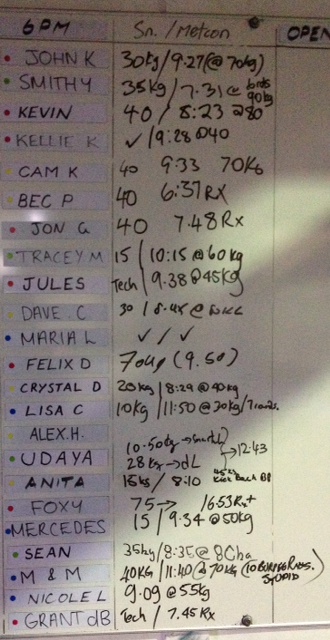 6PM Sn. / Metcon OPEN
JOHN K 30kg / 9.27 (@ 70kg)
SMITHY 35kg / 7.31 @ 90kg
KEVIN 40 / 8:23 @80
KELLIE K ✓ / 9:28 @40
CAM K 40 9:33 70kg
BEC P 40 6:37 Rx
JON G 40 7.48 Rx
TRACEY M 15 / 10:15 @ 60kg
JULES Tech / 9.38 @45kg
DAVE . C 30 /
MARIA L ✓ / ✓
FELIX D (9.50)
CRYSTAL D 20kg / 8:29 @ 40kg
LISA C 10kg / 11:50 @ 30kg / 7 rounds.
ALEX.H.
UDAYA 28kg → dL → 12:43
ANITA 15kg / 8:10
FOXY 75 → / 6.53 Rx+
MERCEDES 15 / 9.34 @ 50kg
SEAN 35kg / 8:35 @
M & M 40KG / 11:40 @ 70kg (10 BURPEES STUPID
NICOLE L 9.09 @ 55kg
GRANT dB Tech / 7.45 Rx